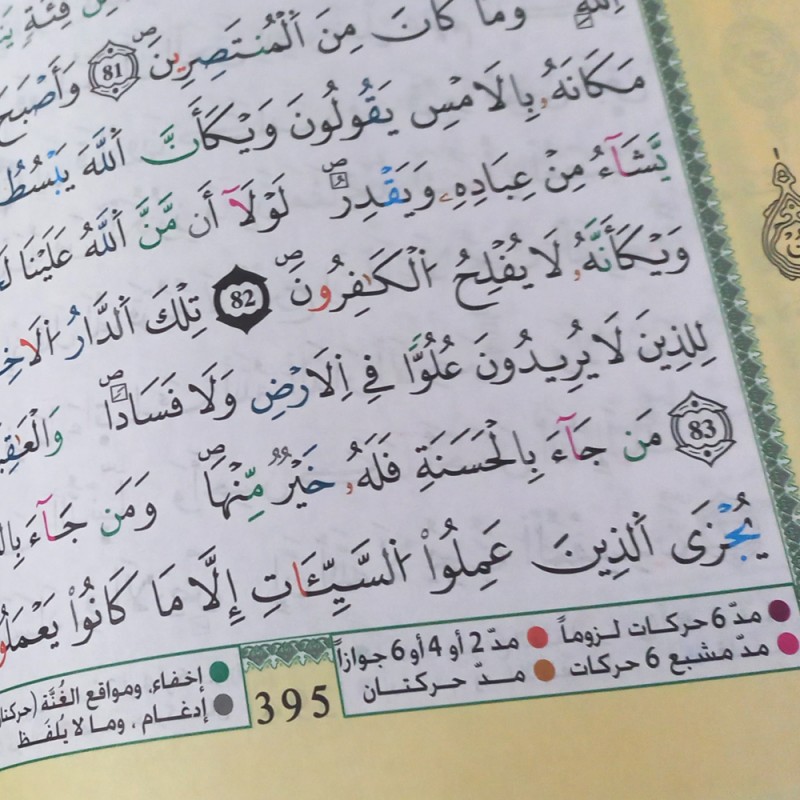 اَ۬للَّهِۖ وَمَا كَانَ مِنَ اَ۬لْمُنتَصِرِينَۖ 81 وَأَصْبَحَ
مَكَانَهُۥ بِالَامْسِ يَقُولُونَ وَيْكَأَنَّ اَ۬للَّهَ يَبْسُطُ
يَّشَآءُ مِنْ عِبَادِهِۦ وَيَقْدِرُۖ لَوْلَآ أَن مَّنَّ اَ۬للَّهُ عَلَيْنَا
وَيْكَأَنَّهُۥ لَا يُفْلِحُ اُ۬لْكَٰفِرُونَۖ 82 تِلْكَ اَ۬لدَّارُ
لِلذِينَ لَا يُرِيدُونَ عُلُوّٗا فِے اِ۬لَارْضِ وَلَا فَسَادٗاۖ
83 مَن جَآءَ بِالْحَسَنَةِ فَلَهُۥ خَيْرٞ مِّنْهَاۖ وَمَن جَآءَ
يُجْزَى اَ۬لذِينَ عَمِلُواْ اُ۬لسَّيِّـَٔاتِ إِلَّا مَا كَانُواْ
مدّ 6 حركات لـزوماً مدّ 2 أو 4 أو 6 جوازاً
مدّ مشبع 6 حركات مـدّ حـركتـان
إخفاء، ومواقع الغُنَّة
إدغام ، وما لا يُلفَـظ
395